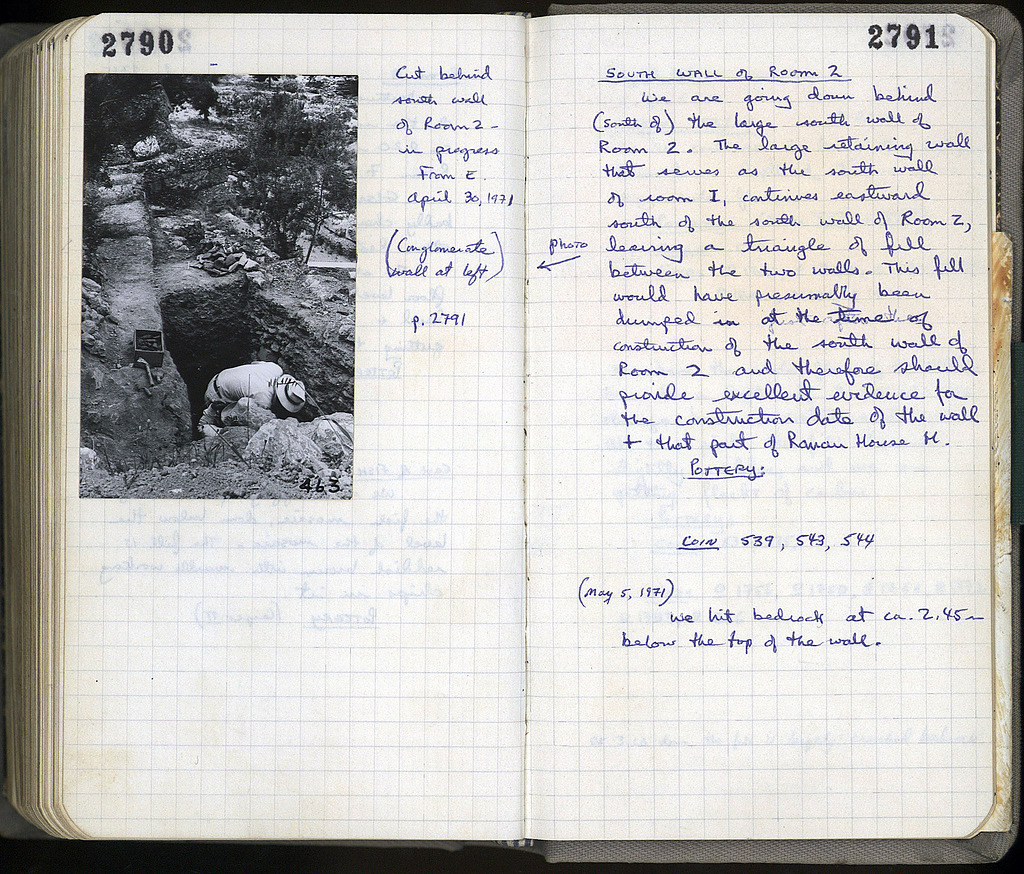 2790
Cut behind
south wall
of Room 2 –
in progress
From E.
April 30, 1971
(Conglomerate
wall at left)
p. 2791
463
2791
SOUTH WALL of ROOM 2
We are going down behind
(south of) the large south wall of
Room 2. The large retaining wall
that serves as the south wall
of room I, continues eastward
south of the south wall of Room 2,
leaving a triangle of fill
between the two walls. This fill
would have presumably been
dumped in at the time of
construction of the south wall of
Room 2 and therefore should
provide excellent evidence for
the construction date of the wall
+ that part of Roman House H.
PHOTO
POTTERY:
COIN 539, 543, 544
(May 5, 1971)
We hit bedrock at ca. 2.45 m
below the top of the wall.